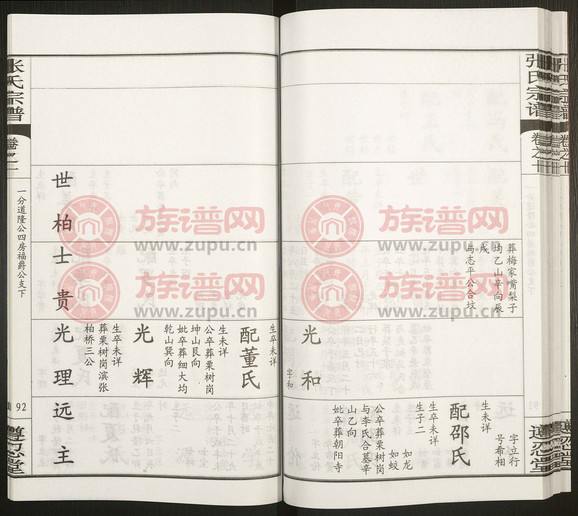 张氏宗谱
卷之十
葬梅家嘴梨子
均乙山辛向辰
戌
与志平公合坟
光和
字和
字立行
号希相
生未详
配邵氏
生卒未详
生子二
如龙
如蛟
公卒葬栗树岗
与李氏合墓辛
山乙向
妣卒葬朝阳寺
遵忍堂
张氏宗谱
卷之十
一分道隆公四房福爵公支下
92
遵忍堂
生卒未详
配董氏
生未详
公卒葬栗树岗
坤山艮向
妣卒葬细大均
乾山巽向
光辉
生卒未详
葬栗树岗滨张
柏桥三公
世柏士贵光理远主
族谱网
www.zupu.cn
族谱网
www.zupu.cn
族谱网
www.zupu.cn
族谱网
www.zupu.cn